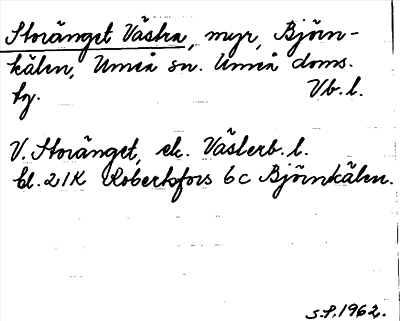 Storänget Västra, myr, Björn-
kälen, Umeå sn. Umeå doms.
tg. Vb. l.
V. Storänget, ek. Västerb. l.
bl. 21K Robertsfors 6c Björnkälen.
S.P. 1962.